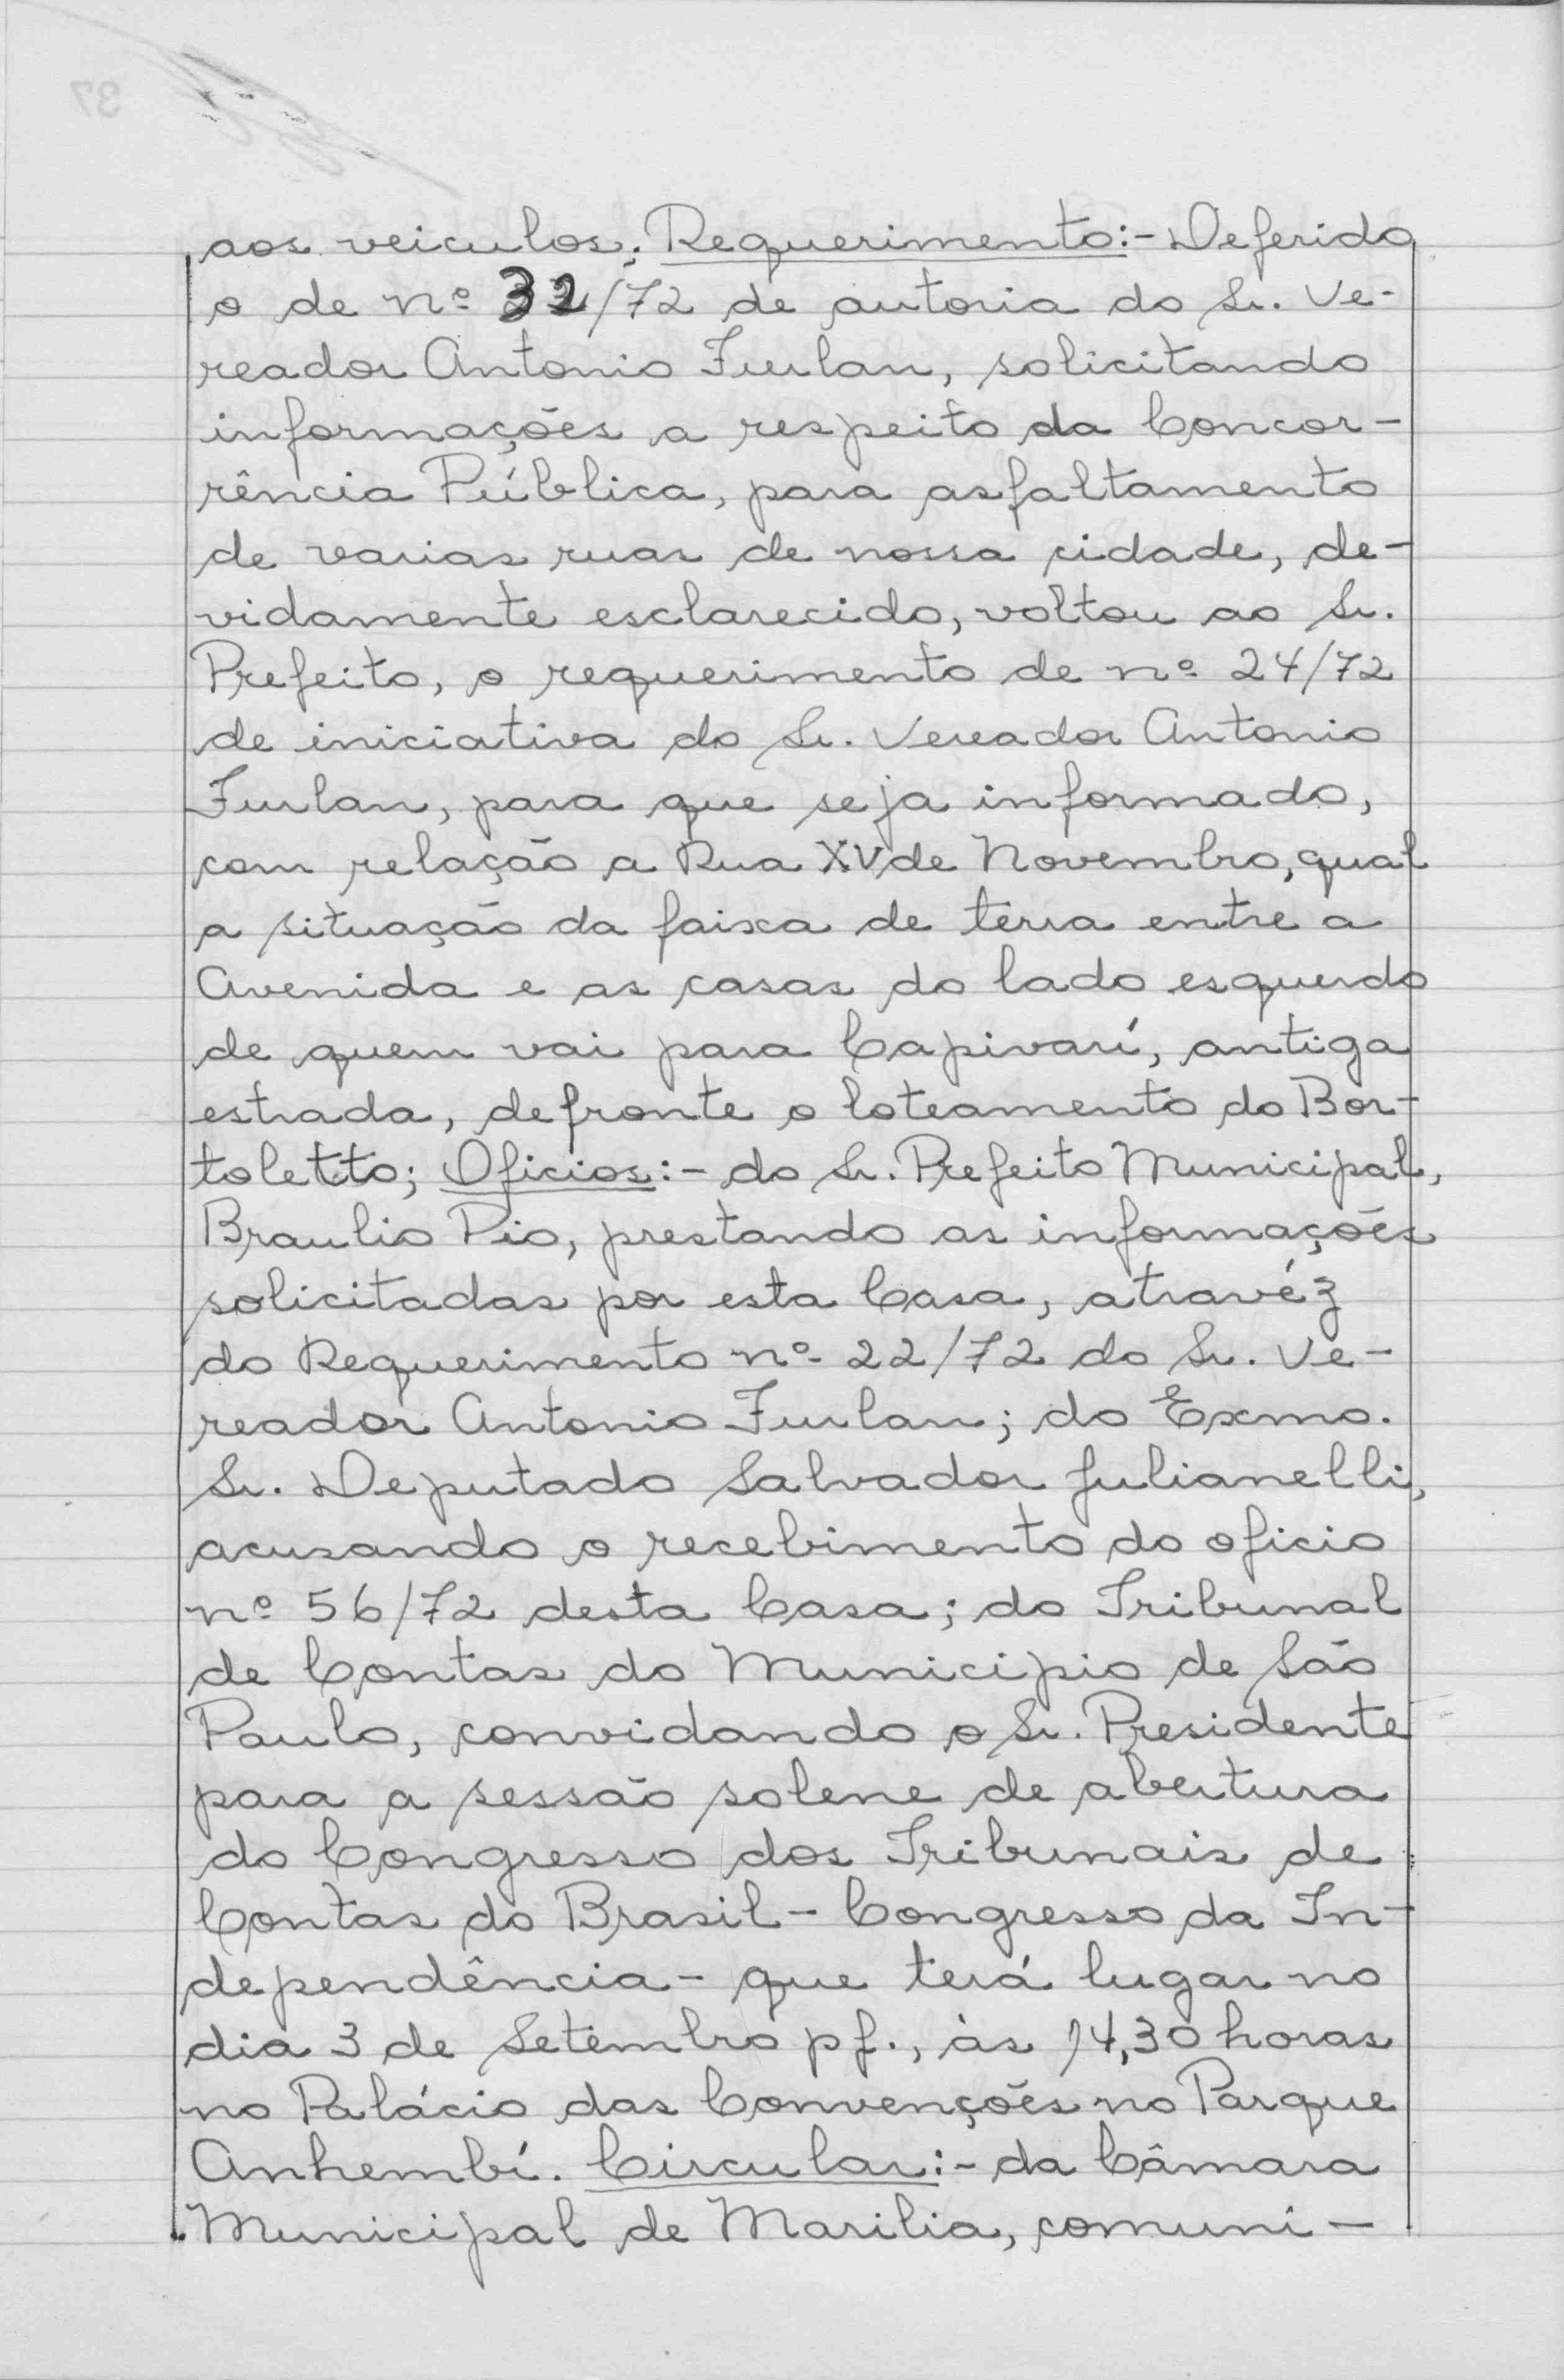 aos veiculos; Requerimento:- Deferido
o de nº 32/72 de autoria do Sr. Ve-
reador Antonio Furlan, solicitando
informações a respeito da Concor-
rência Pública, para asfaltamento
de varias ruas de nossa cidade, de-
vidamente esclarecido, voltou ao Sr.
Prefeito, o requerimento de nº 24/72
de iniciativa do Sr. Vereador Antonio
Furlan, para que seja informado,
com relação a Rua XV de Novembro, qual
a situação da faixa de terra entre a
Avenida e as casas do lado esquerdo
de quem vai para Capivarí, antiga
estrada, defronte o loteamento do Bor-
toletto; Oficios:- do Sr. Prefeito Municipal,
Braulio Pio, prestando as informações
solicitadas por esta Casa, atravéz
do Requerimento nº 22/72 do Sr. Ve-
reador Antonio Furlan; do Exmo.
Sr. Deputado Salvador Julianelli,
acusando o recebimento do oficio
nº 56/72 desta Casa; do Tribunal
de Contas do Municipio de São
Paulo, convidando o Sr. Presidente
para a sessão solene de abertura
do Congresso dos Tribunais de
Contas do Brasil - Congresso da In-
dependência - que terá lugar no
dia 3 de Setembro pf., às 14,30 horas
no Palácio das Convenções no Parque
Anhembí. Circular:- da Câmara
Municipal de Marilia, comuni-